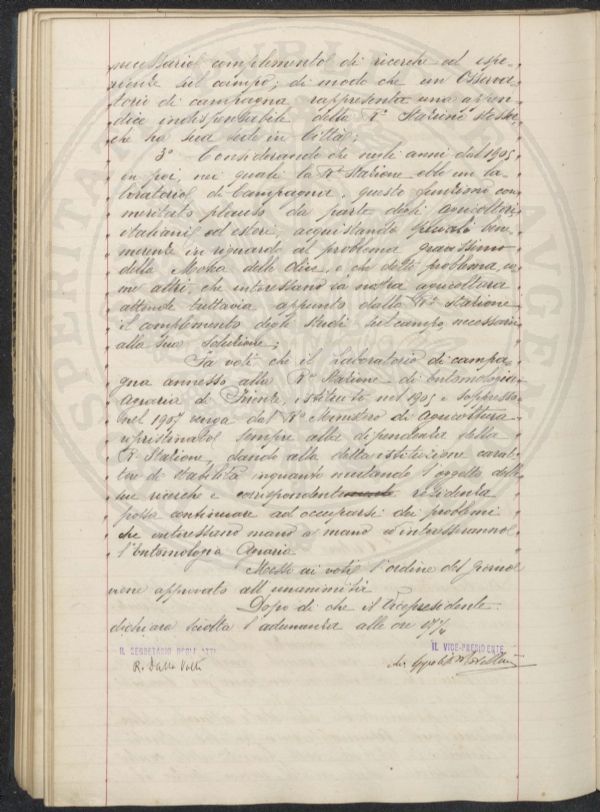 necessario complemento di ricerche ed espe-
rienze sul campo; di modo che un Osserva-
torio di campagna rappresenta una appen-
dice indispensabile della Rª Stazione stessa
che ha sua sede in città;
3º Considerando che negli anni dal 1905
in poi, nei quali la Rª Stazione ebbe un la-
boratorio di Campagna, questo funzionò con
meritato plauso da parte degli agricoltori
italiani ed esteri, acquistando speciali bene-
merenze in riguardo al problema gravissimo
della Mosca delle Olive, e che detto problema, co-
me altri, che interessano la nostra agricoltura
attende tuttavia appunto dalla Rª Stazione
il complemento degli studi sul campo, necessari
alla sua soluzione;
Fa voti che il Laboratorio di campa-
gna annesso alla Rª Stazione di Entomologia
Agraria di Firenze, istituito nel 1905 e soppresso
nel 1907 venga dal Rº Ministero di Agricoltura
ripristinato sempre alla dipendenza della
Rª Stazione, dando alla detta istituzione carat-
tere di stabilità inquanto mutando l'oggetto delle
sue ricerche e corrispondente residenza
possa continuare ad occuparsi dei problemi
che interessano mano a mano o interesseranno
l'Entomologia Agraria.
Messo ai voti l'ordine del giorno
viene approvato all'unanimità
Dopo di che il Vicepresidente
dichiara sciolta l'adunanza alle ore 17¼
IL SEGRETARIO DEGLI ATTI IL VICE-PRESIDENTE
R. Dalla Volta